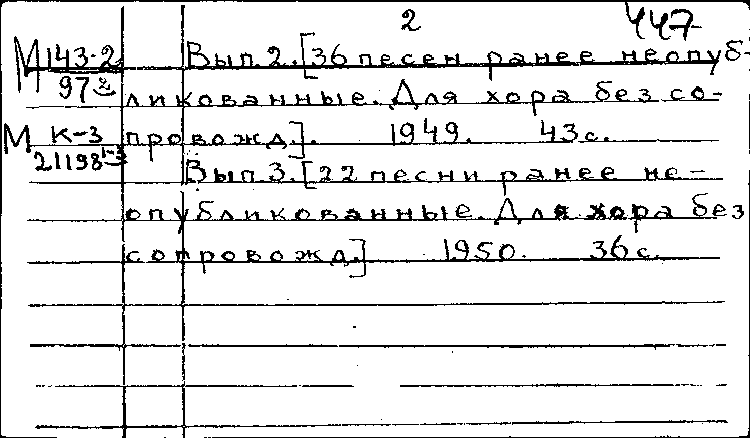 2
447
М 143-2 Вып. 2. [36 песен ранее неопуб-
97 ликованные. Для хора без со-
М К-3 провожд.]. 1949. 43 с.
21198 Вып. 3. [22 песни ранее не-
опубликованные. Для хора без
сопровожд.] 1950. 36 с.